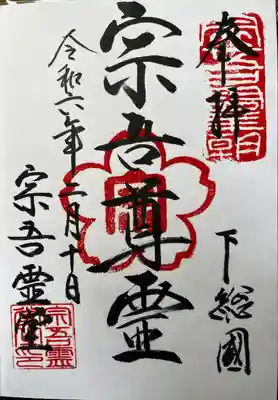 奉拝
下総國
宗吾尊霊
令和六年二月十日
宗吾霊堂